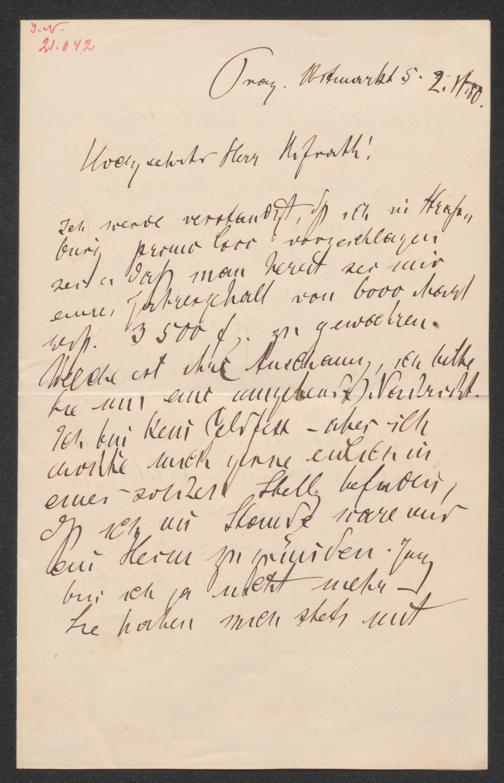 I.N.
21.042
Prag. Obstmarkt 5. 2. VI 80.
Hochgeehrter Herr Hofrath!
Ich werde verständigt, dß ich in Straß„
burg primo loco vorgeschlagen
sei u daß man bereit sei mir
einen Jahresgehalt von 6000 Mark
resp. 3500 f. zu gewähren.
Welche ist ihre Anschauung, ich bitte
Sie um eine umgehende Nachricht.
Ich bin kein Geldfex – aber ich
möchte mich gerne endlich in
einer soliden Stellg befinden,
dß ich im Stande wäre mir
ein Heim zu gründen. Jung
bin ich ja nicht mehr –
Sie haben mich stets mit